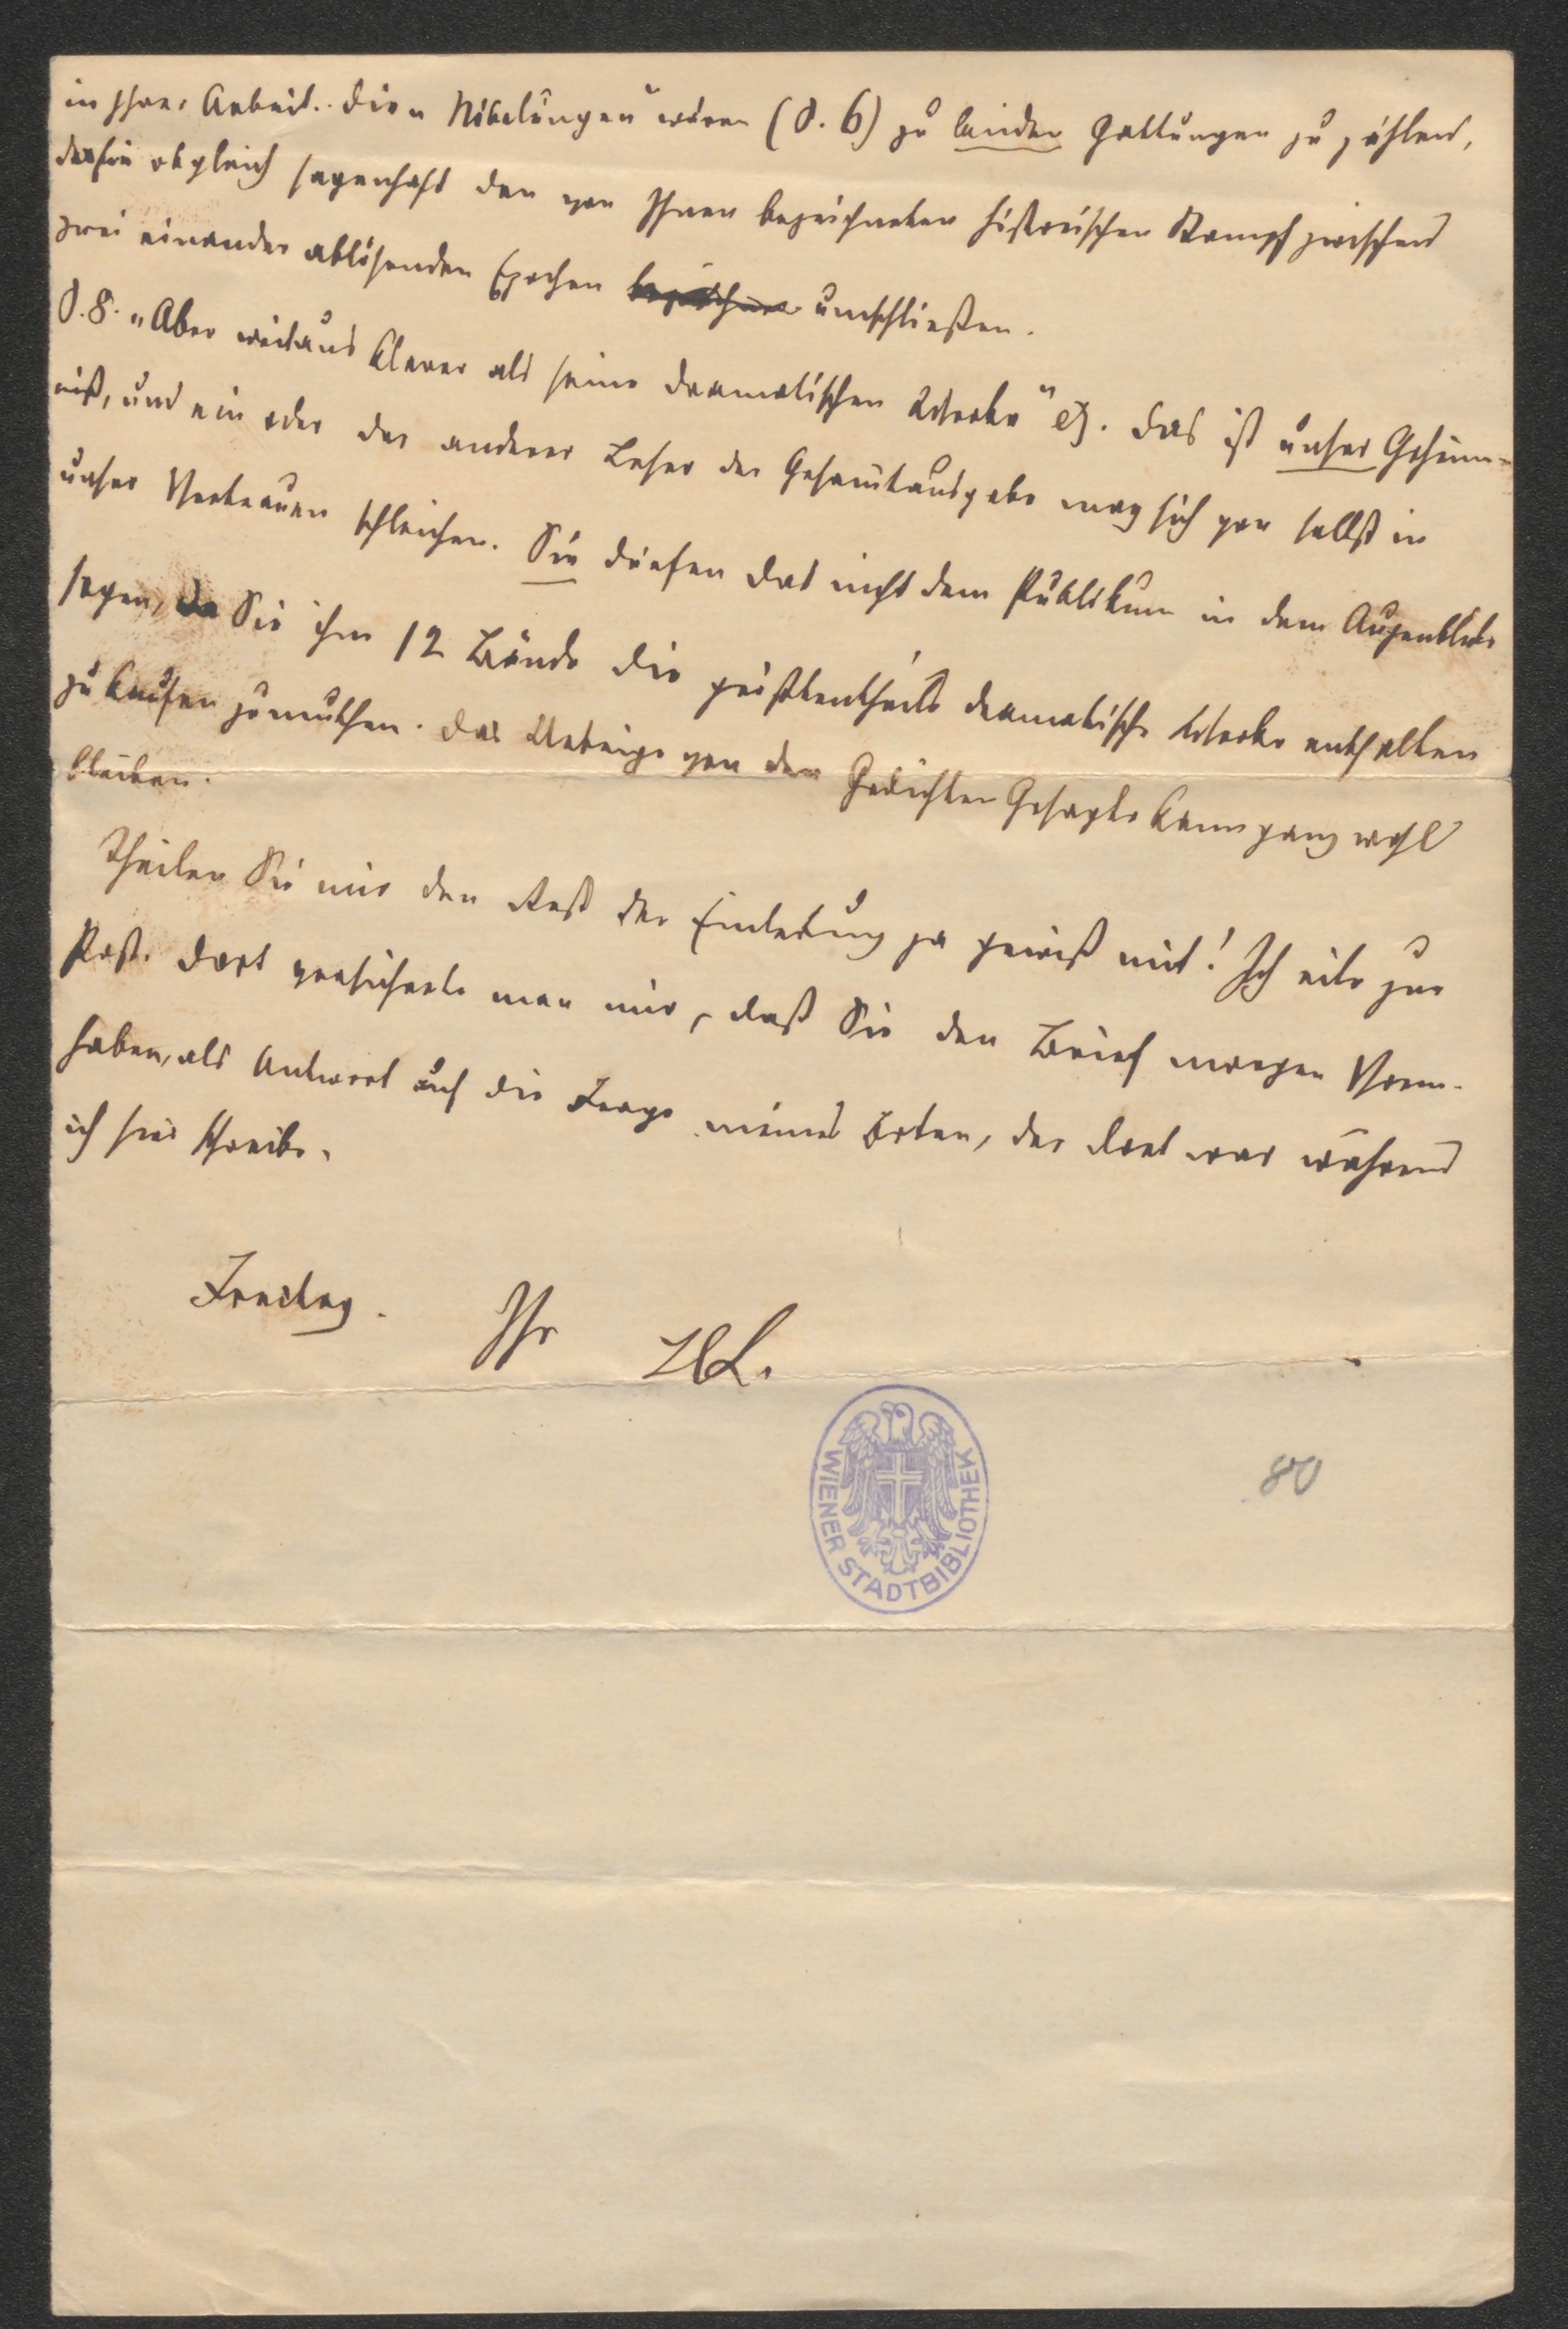 in Ihrer Arbeit. Die „Nibelungen" wären (S. 6) zu beiden Gattungen zu zählen,
da sie obgleich sagenhaft den von Ihnen bezeichneten historischen Kampf zwischen
zwei einander ablösenden Epochen umschließen.
S. 8. „Aber weitaus klarer als seine dramatischen Werke" etz. Das ist unser Geheim-
niß, und ein oder der anderer Leser der Gesamtausgabe mag sich von selbst in
unser Vertrauen schleichen. Sie dürfen das nicht dem Publikum in dem Augenblicke
sagen, da Sie ihm 12 Bände die größtentheils dramatische Werke enthalten
zu kaufen zumuthen. Das Uebrige von den Gedichten Gesagte kann ganz wohl
bleiben.
Theilen Sie mir den Rest der Einleitung ja gewiß mit! Ich eile zur
Post. Dort versicherte man mir, daß Sie den Brief morgen Vorm.
haben, als Antwort auf die Frage meines Boten, der dort war während
ich hier schreibe.
Freitag. Ihr
WIENER STADTBIBLIOTHEK
80